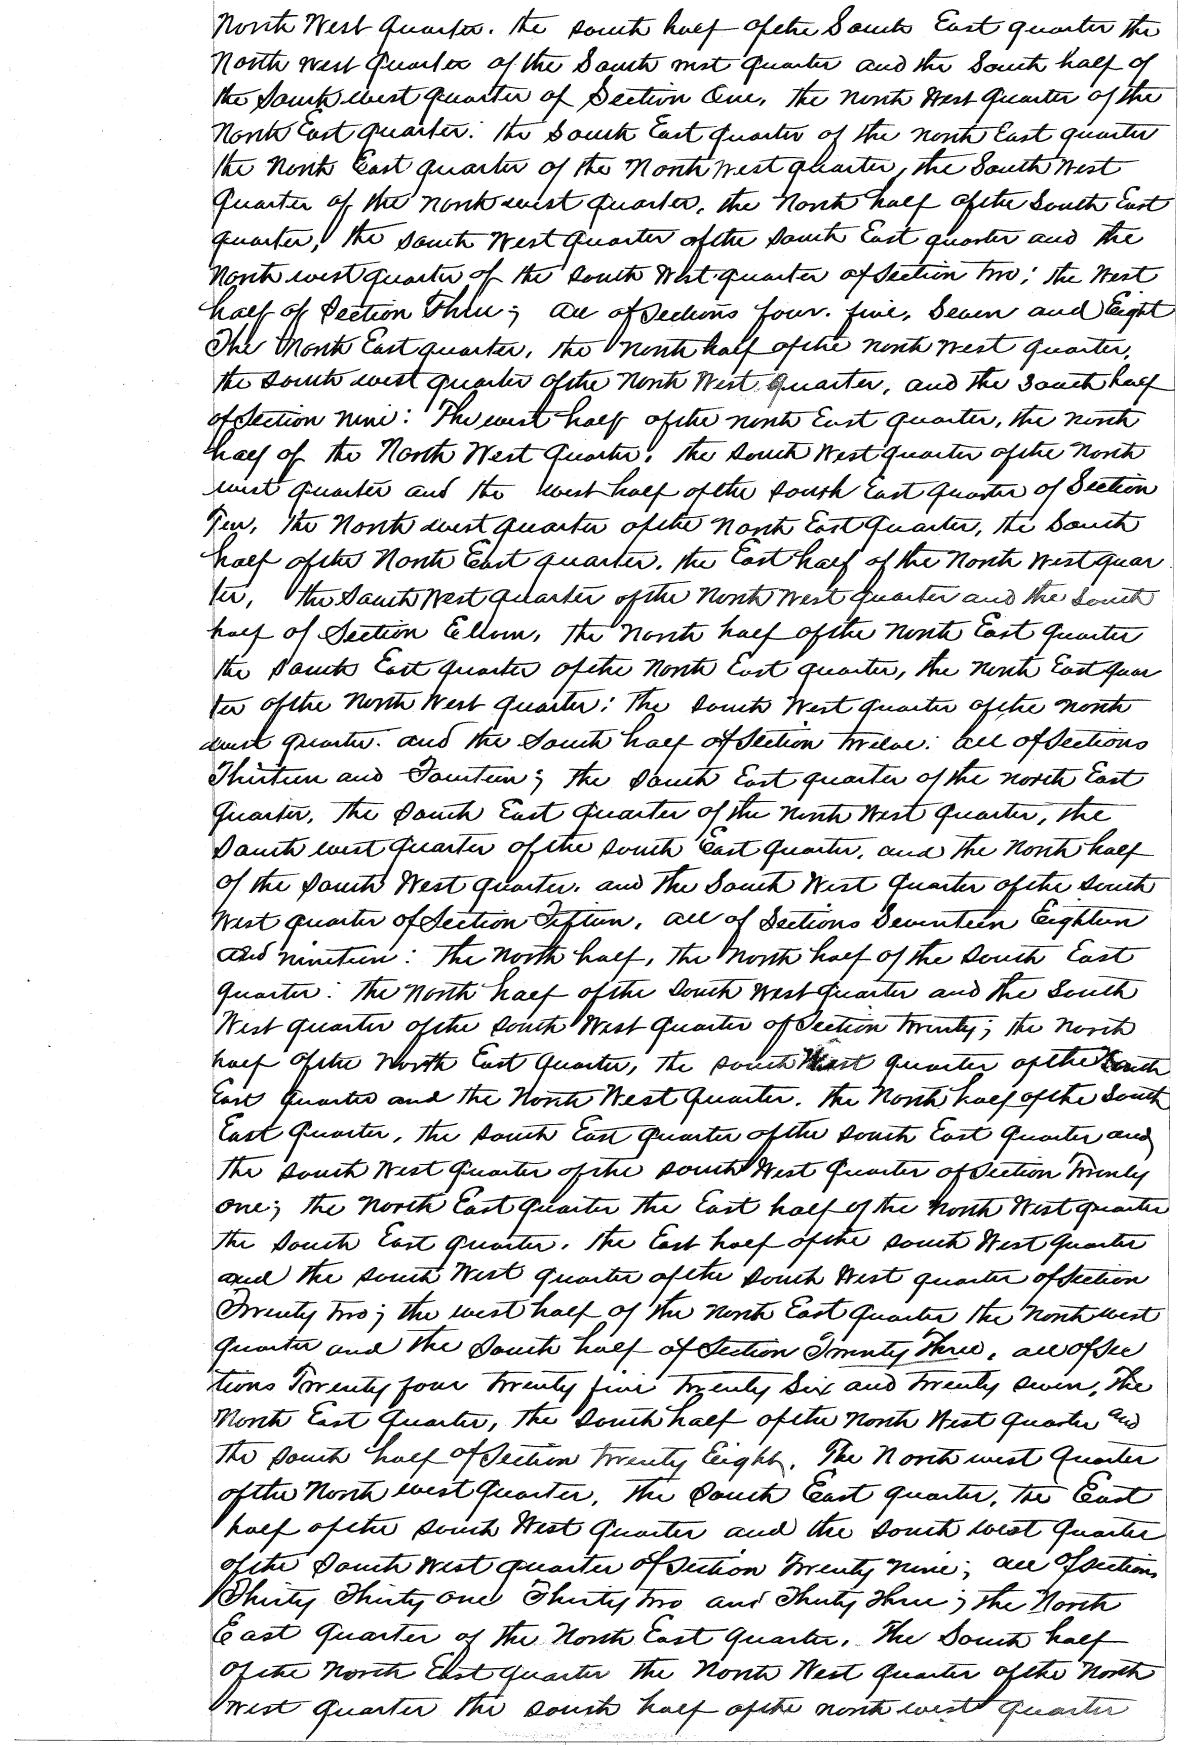 North West Quarter. the south half of the South East quarter the
North West Quarter of the South West quarter and the South half of
the South west quarter of Section One, the North West Quarter of the
North East quarter: the South East Quarter of the North East quarter
the North East quarter of the North West quarter, the South West
Quarter of the North west quarter, the North half of the South East
quarter, the South West Quarter of the South East quarter and the
North west quarter of the South West quarter of Section two; the West
half of Section Three; all of Sections four. five, Seven and Eight
The North East quarter, the North half of the North West quarter,
the South west quarter of the North West Quarter, and the South half
of Section Nine: The west half of the North East quarter, the North
half of the North West Quarter, the South West quarter of the North
west quarter and the west half of the South East quarter of Section
Ten, the North west quarter of the North East Quarter, the South
half of the North East quarter, the East half of the North West quar
ter, the South West quarter of the North West quarter and the South
half of Section Eleven, the North half of the North East Quarter
the South East quarter of the North East quarter, the North East quar
ter of the North West quarter; the South West quarter of the North
west quarter. and the South half of Section twelve: all of Sections
Thirteen and Fourteen; the South East quarter of the North East
Quarter, the South East Quarter of the North West Quarter, the
South west Quarter of the South East Quarter, and the North half
of the South West quarter. and the South West Quarter of the South
West quarter of Section Fifteen, all of Sections Seventeen Eighteen
and nineteen: the North half, the North half of the South East
quarter: the North half of the South West Quarter and the South
West quarter of the South West quarter of Section twenty; the North
half of the North East Quarter, the South West quarter of the South
East Quarter and the North West Quarter. the North half of the South
East Quarter, the South East quarter of the South East Quarter and
the South West quarter of the South West Quarter of Section Twenty
one; the North East Quarter the East half of the North West quarter
the South East quarter. the East half of the South West quarter
and the South West quarter of the South West quarter of Section
Twenty two; the west half of the North East Quarter the North west
quarter and the South half of Section Twenty Three, all of Sec
tions Twenty four twenty five twenty Six and twenty seven, The
North East Quarter, the South half of the North West quarter and
the South half of Section twenty Eight, The North west Quarter
of the North west Quarter, the South East quarter, the East
half of the South West Quarter and the South west Quarter
of the South West quarter of Section Twenty nine; all of Sections
Thirty Thirty one Thirty two and Thirty Three; the North
East Quarter of the North East Quarter, The South half
of the North East Quarter the North West Quarter of the North
West Quarter the South half of the North west Quarter